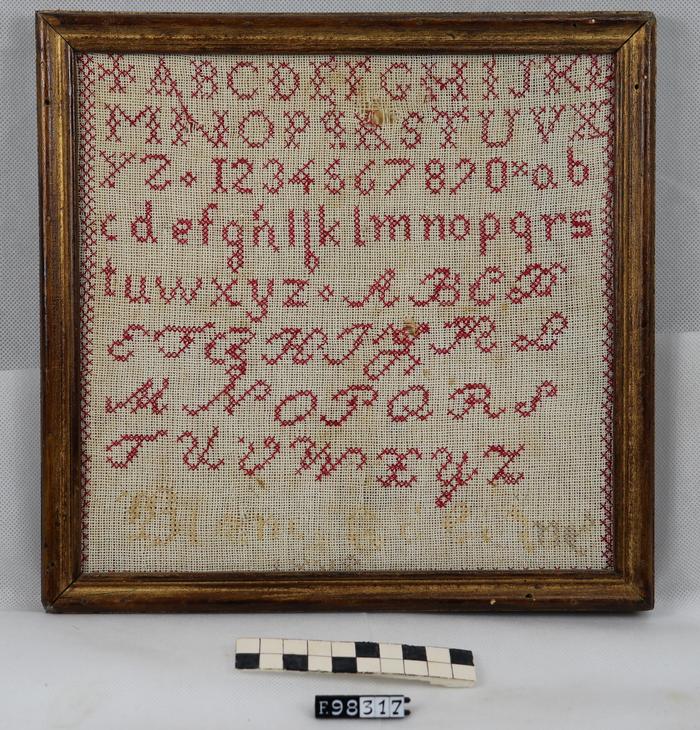 A B C D E F G H I J K L
M N O P Q R S T U V X
Y Z 1 2 3 4 5 6 7 8 9 0 a b
c d e f g h i j k l m n o p q r s
t u w x y z A B C D
E F G H I J K L
M N O P Q R S
T U V W X Y Z
F.98317